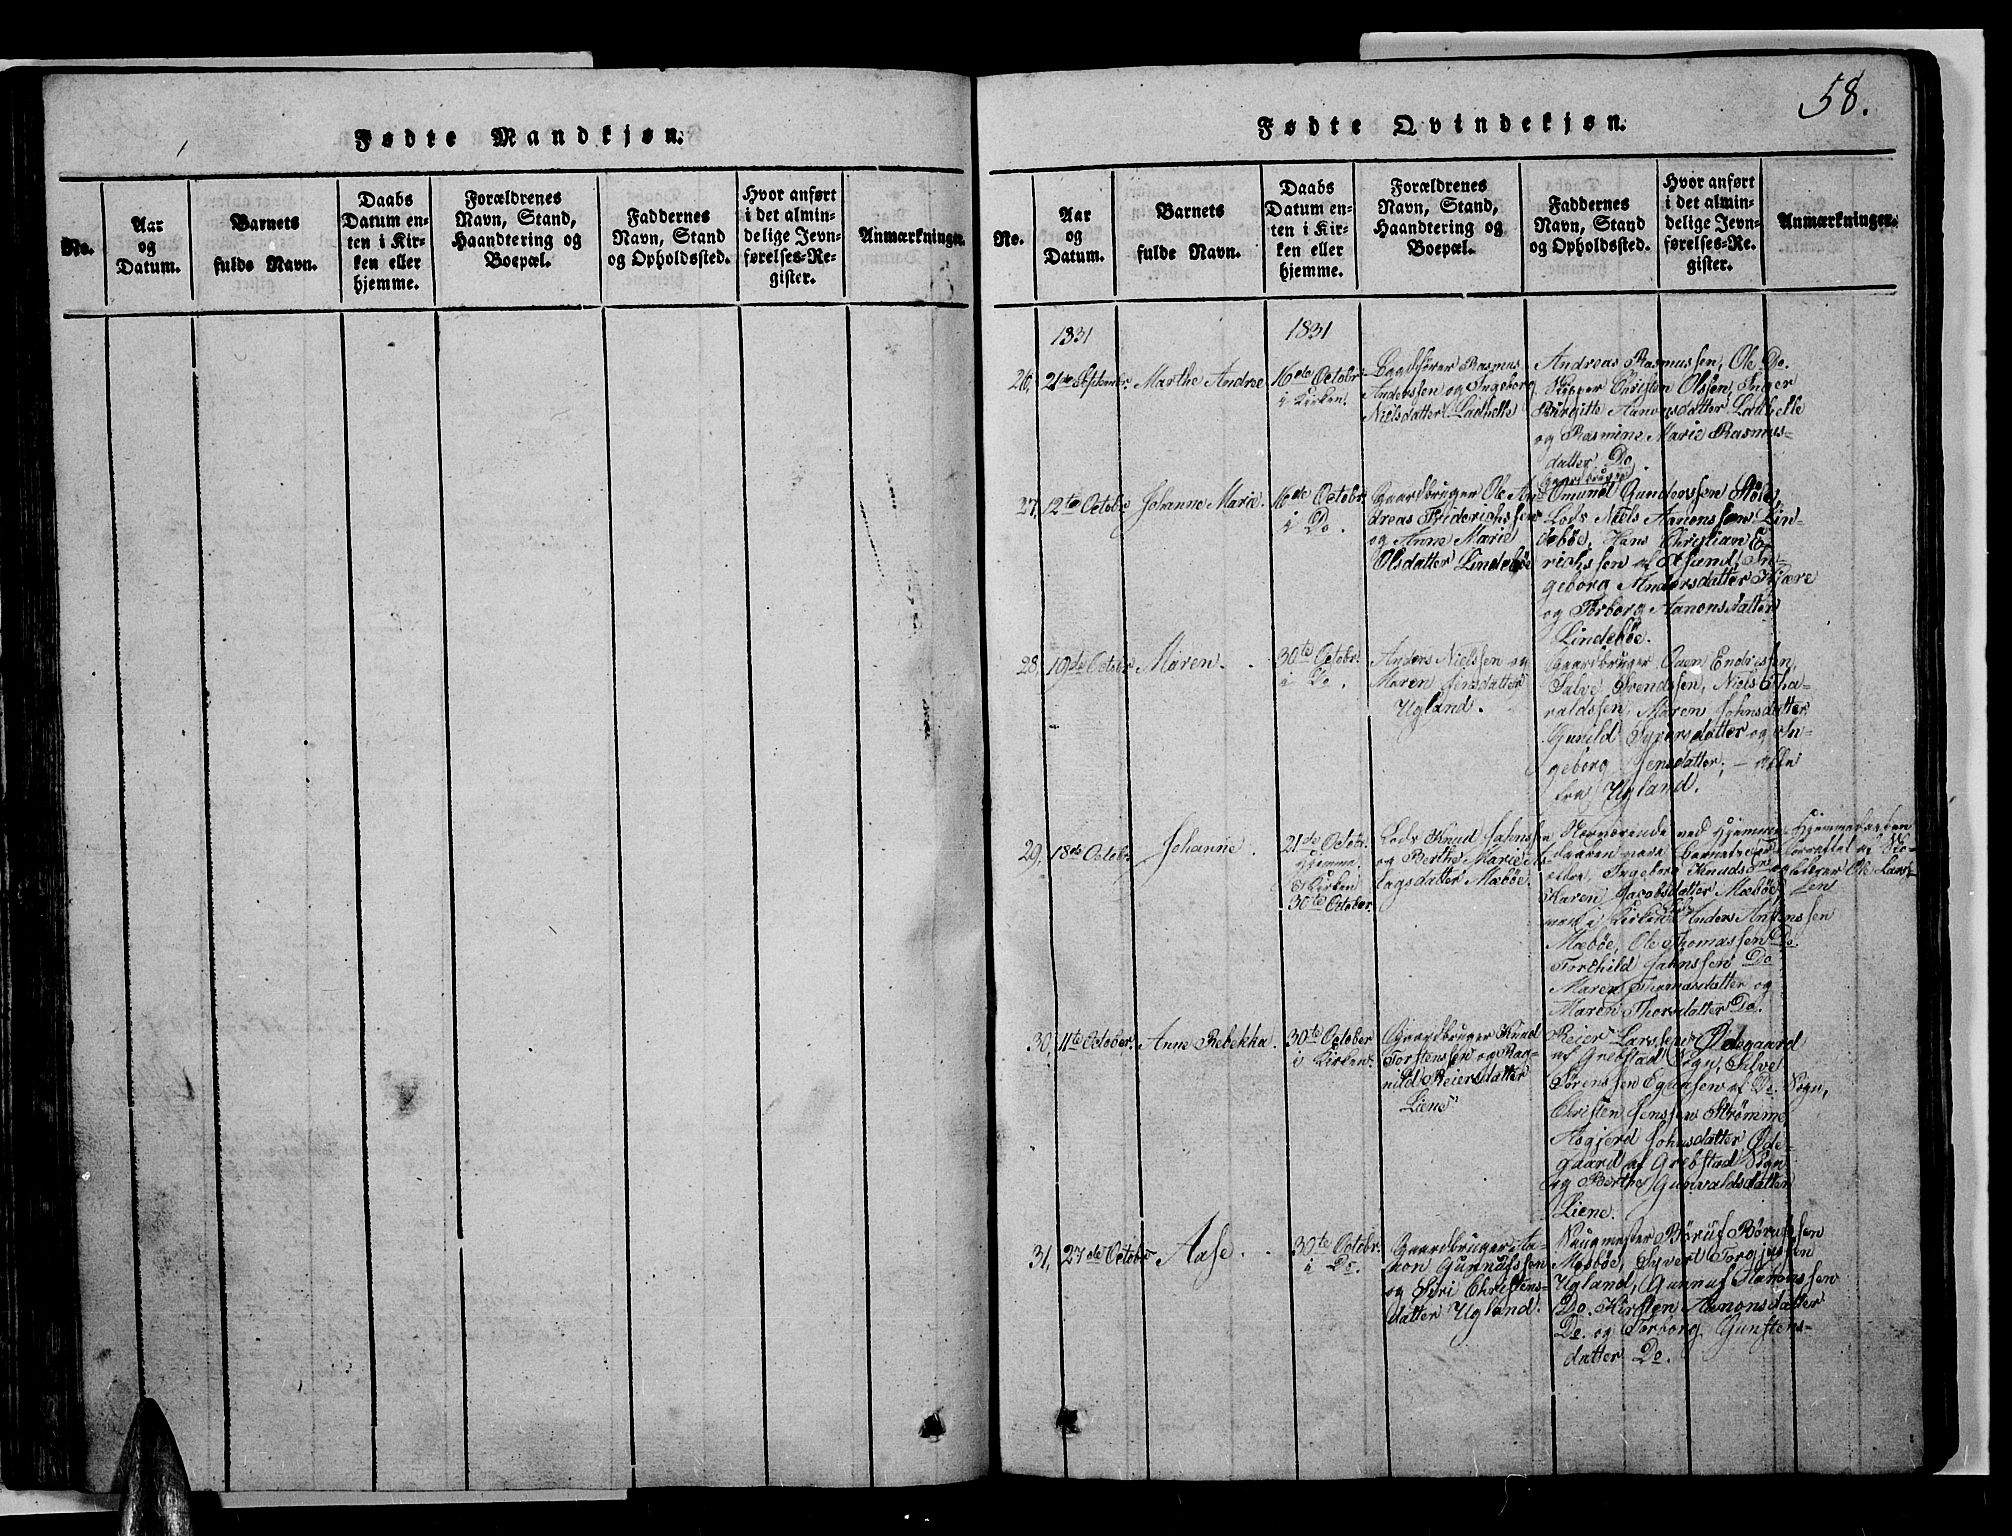 58.
Fødte Mandkjøn.
No.
Aar
og
Datum.
Barnets
fulde Navn.
Daabs
Datum en-
ten i Kir-
ken eller
hjemme.
Forældrenes
Navn, Stand,
Haandtering og
Boepæl.
Faddernes
Navn, Stand
og Opholdssted.
Hvor anført
i det almin-
delige Jevn-
førelses-Re-
gister.
Anmærkninger.
Fødte Qvindekjøn.
No.
Aar
og
Datum.
Barnets
fulde Navn.
Daabs
Datum en-
ten i Kir-
ken eller
hjemme.
Forældrenes
Navn, Stand,
Haandtering og
Boepæl.
Faddernes
Navn, Stand
og Opholdssted.
Hvor anført
i det almin-
delige Jevn-
førelses-Re-
gister.
Anmærkninger.
1831
1831
26, 21de Septembr.
Marthe Andrea
16de Octobr.
i Kirken.
Rasmus
Anderssen og Ingeborg
Nielsdatter Ladhelle
Andreas Rasmussen, Ole Do.
Christen Olssen, Inger
Birgitte Aanonsdatter Ladhelle
og Rasmine Marie Rasmus-
datter Do
27, 12te Octobr.
Johanne Marie.
16de Octobr.
i Do.
Gaardbruger Ole An-
dreas Friderichssen
og Anne Marie
Olsdatter Lindebøe
Gaardbruger
Omund Gunderssen Støle
Lods Niels Aanonssen Lin-
debøe, Hans Christian E-
richssen af Aasund, In-
geborg Andersdatter Kjære
og Torborg Aanonsdatter
Lindebøe.
28, 19de Octobr.
Maren.
30te Octobr.
i Do.
Anders Nielssen og
Maren Jensdatter
Ugland.
Gaardbruger Ouen Endressen,
Salve Svendssen, Niels Tha-
raldssen, Maren Johnsdatter
Gunild Syversdatter og In-
geborg Jensdatter; – alle
fra Ugland.
29, 18de Octobr.
Johanne.
21de Octobr.
Hjemme
I Kirken
30te October.
Lods Knud Jahnssen
og Berthe Marie As-
lagsdatter Mæbøe.
Nærværende ved Hjemme-
daaben vare Barnets For-
ældre, Ingeborg Knudsd. og
Karen Jacobsdatter Mæbøe,
men i Kirken Anders Antonssen
Mæbøe, Ole Thomassen Do.
Torkild Jahnssen Do
Maren Thomasdatter og
Maren Thorsdatter Do.
Hjemmedaaben
forrettet af Sko-
leholder Ole Lars-
sen
30, 11te October.
Anne Rebekka.
30te October
i Kirken.
Gaardbruger Knud
Torstenssen og Rag-
nild Reiersdatter
Liene
Reier Larssen Ødegaard
af Grebstad Sogn, Salve
Sørenssen Egaasen af Do. Sogn,
Christen Jenssen Strømme
Asgjerd Johnsdatter Øde-
gaard af Grebstad Sogn
og Berthe Gunvaldsdatter
Liene.
31, 27de Octobr.
Aase.
30te Octobr.
i Do.
Gaardbruger Aa-
non Gunnufssen
og Siri Christens-
datter Ugland.
Saugmester Børuf Børufssen
Mæbøe, Syvert Torgjussen
Ugland, Gunnuf Aanonssen
Do. Kirsten Aanonsdatter
Do. og Torborg Gunstens-
datter Do.